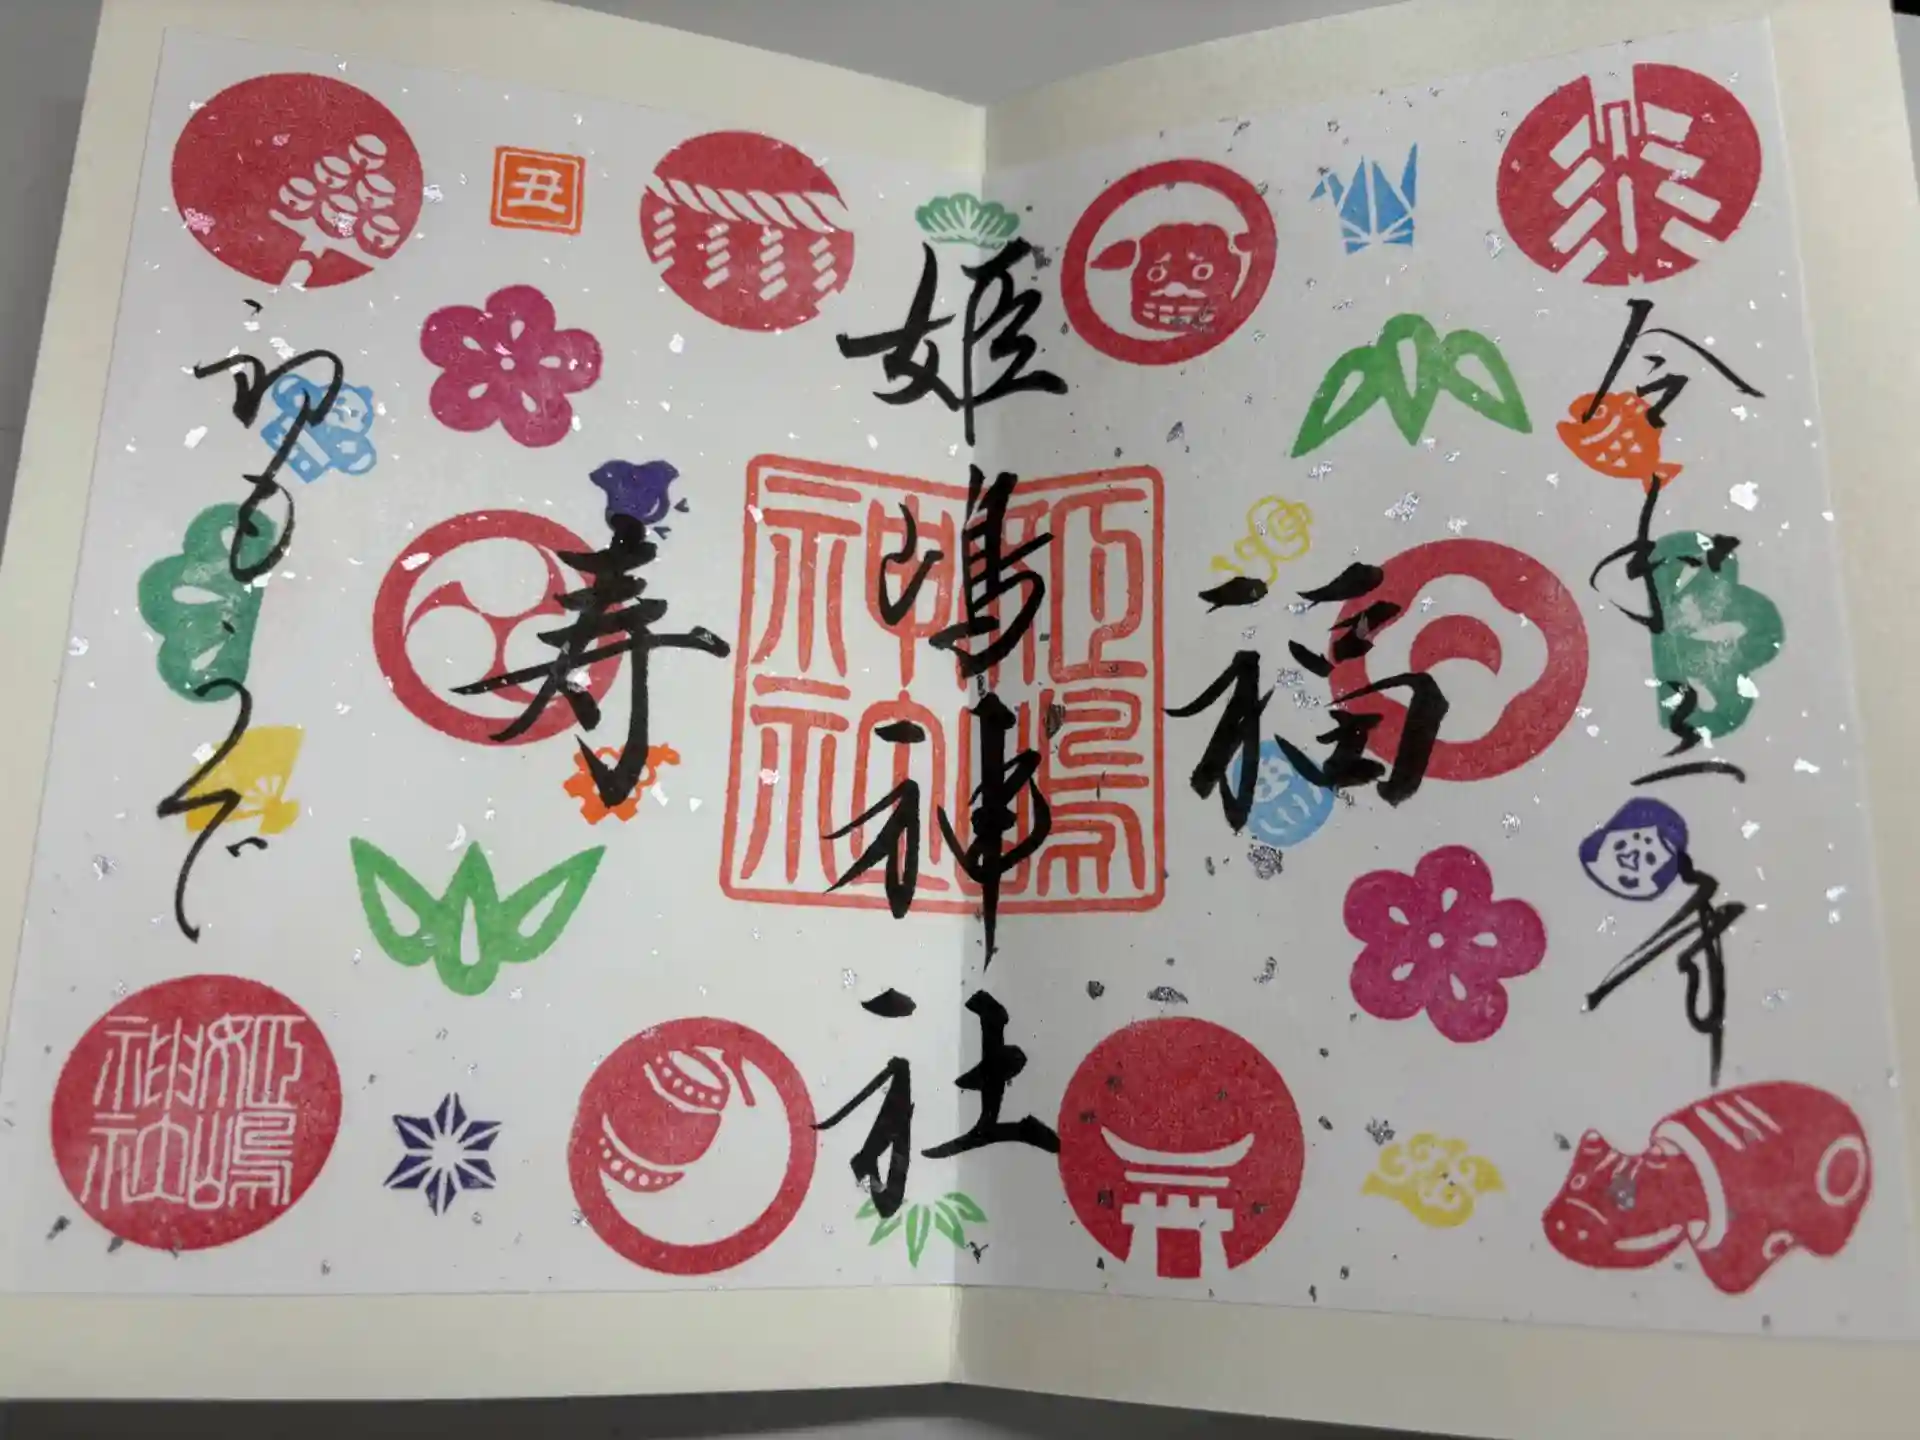 令和三年
福
姫嶋神社
姫嶋神社
寿
丑
初もうで
姫嶋神社